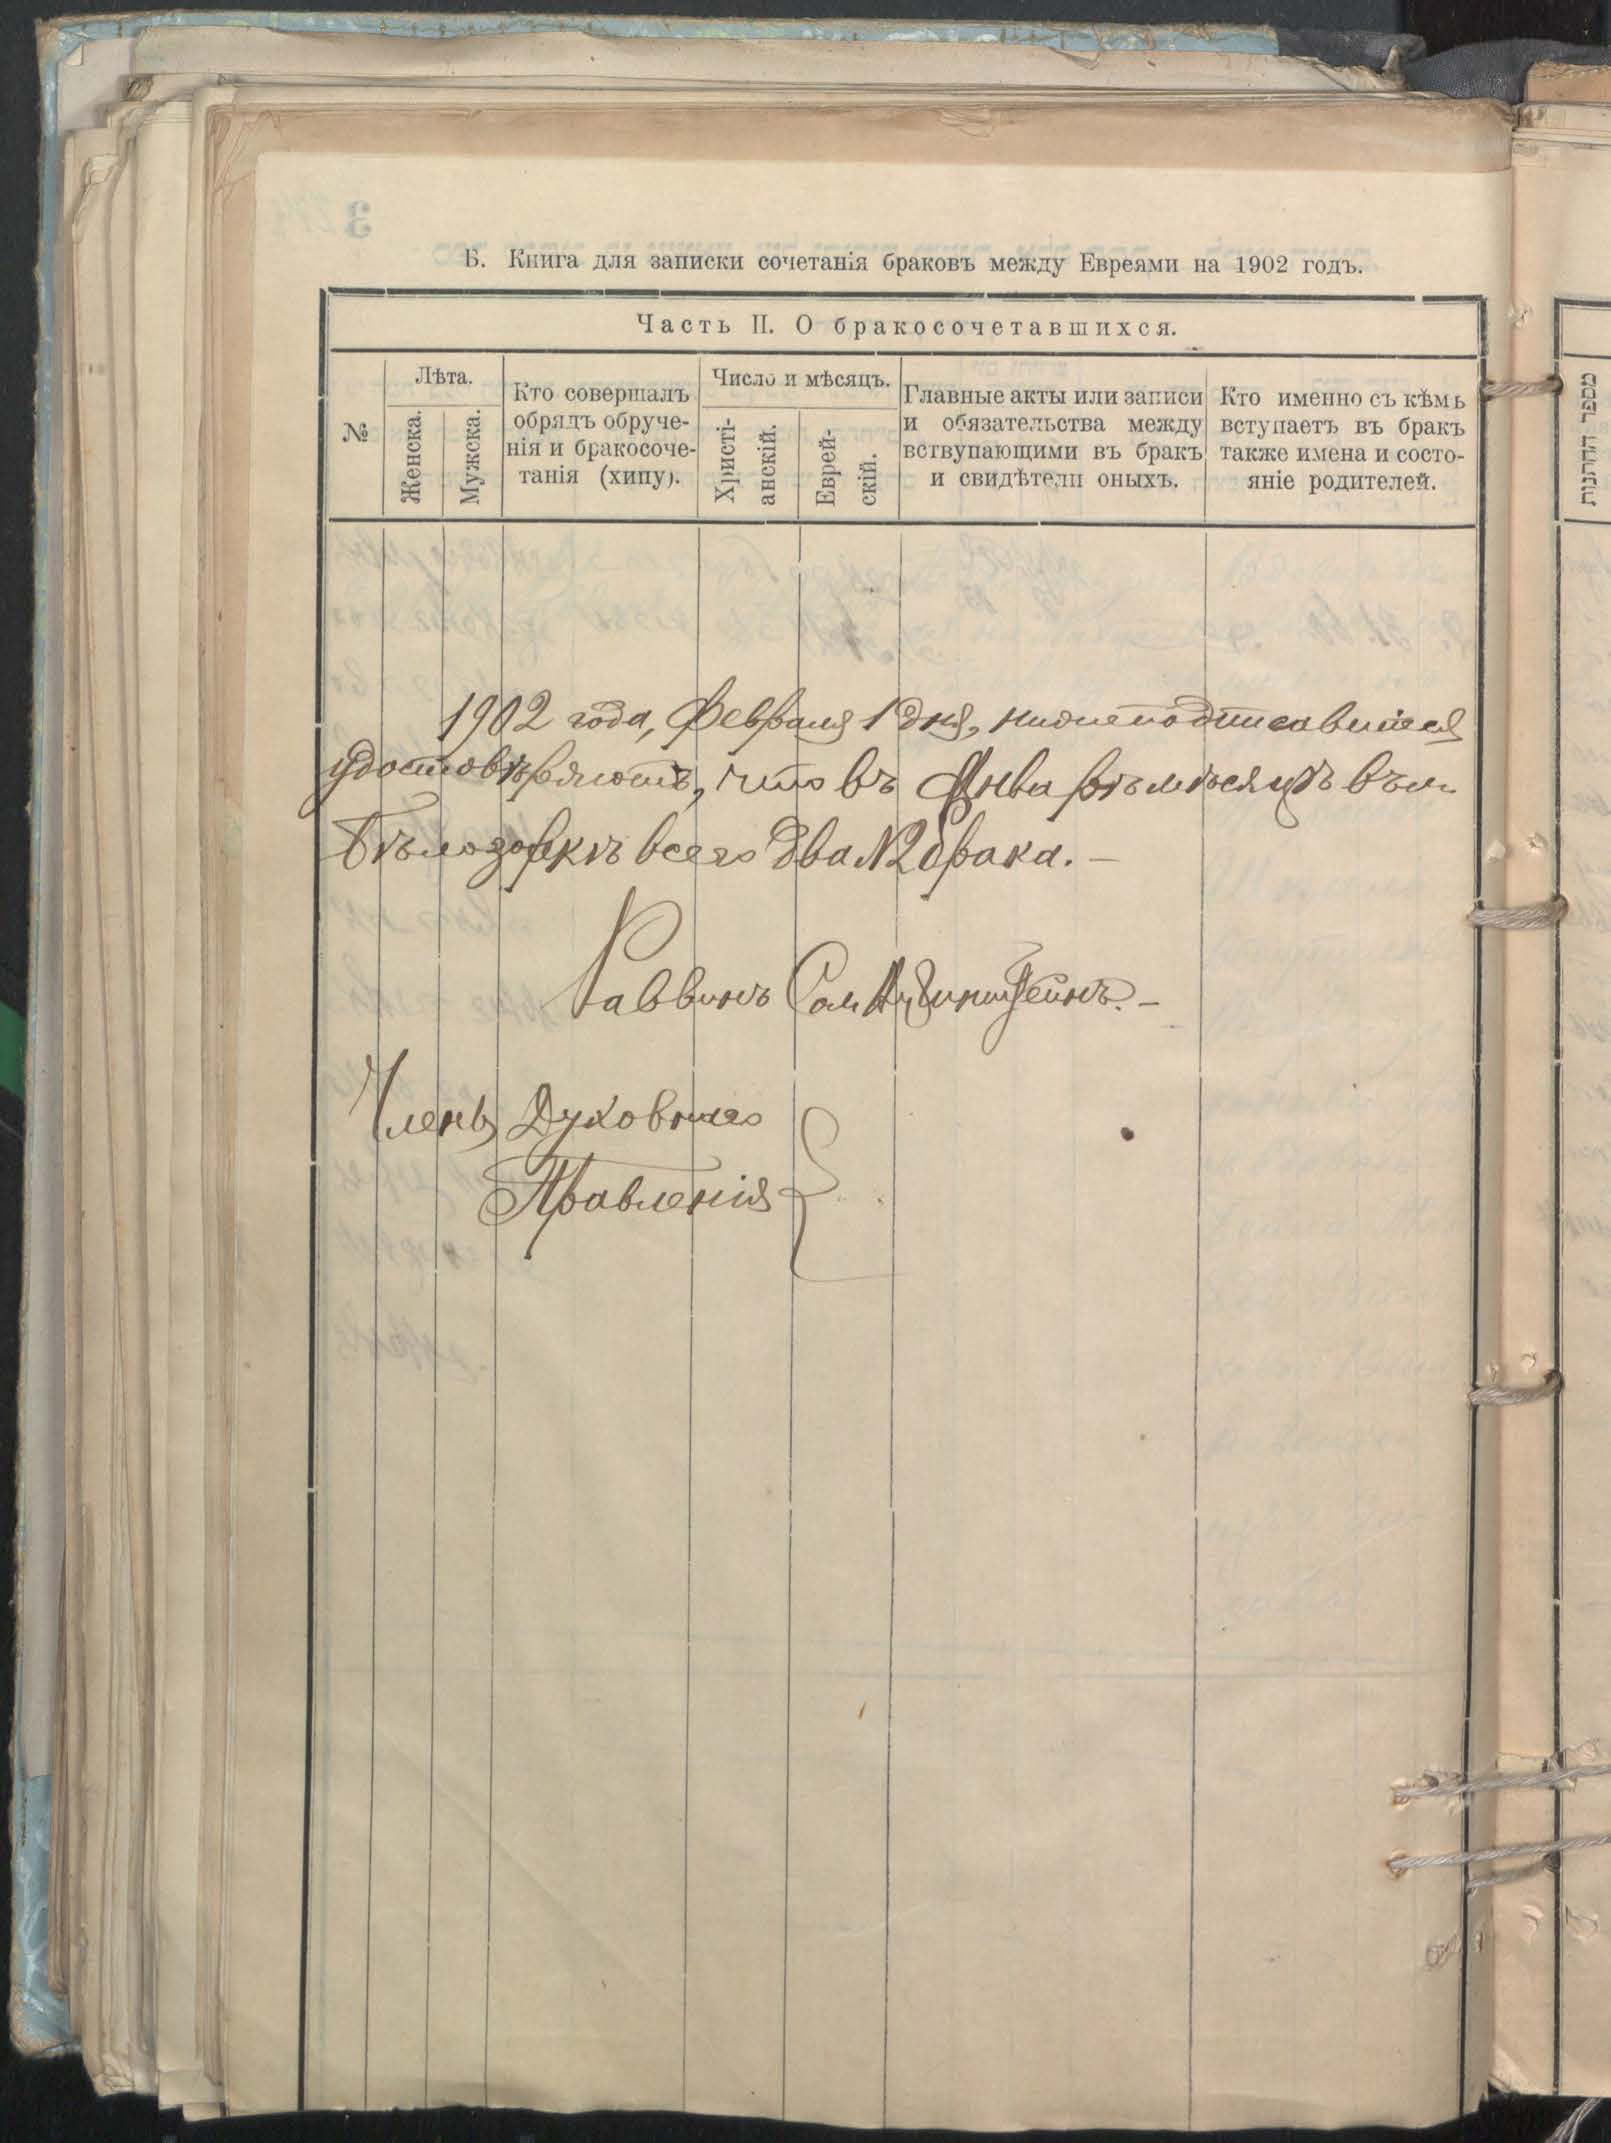 Б. Книга для записки сочетанія браковъ между Евреями на 1902 годъ.
Часть II. О бракосочетавшихся.
№
Лѣта.
Женска.
Мужска.
Кто совершалъ
обрядъ обруче-
нія и бракосоче-
танія (хипу).
Число и мѣсяцъ.
Христі-
анскій.
Еврей-
скій.
Главные акты или записи
и обязательства между
вствупающими въ бракъ
и свидѣтели оныхъ.
Кто именно съ кѣмъ
вступаетъ въ бракъ
также имена и состо-
яніе родителей.
1902 года, Февраля 1 дня, нижеподписавшіеся
удостовѣряютъ, что въ Январѣ мѣсяцѣ въ м.
Бѣлозоркѣ всего два №2 брака. —
Раввинъ Сам
Члены Духовнаго
Правленія
ספר החתונות